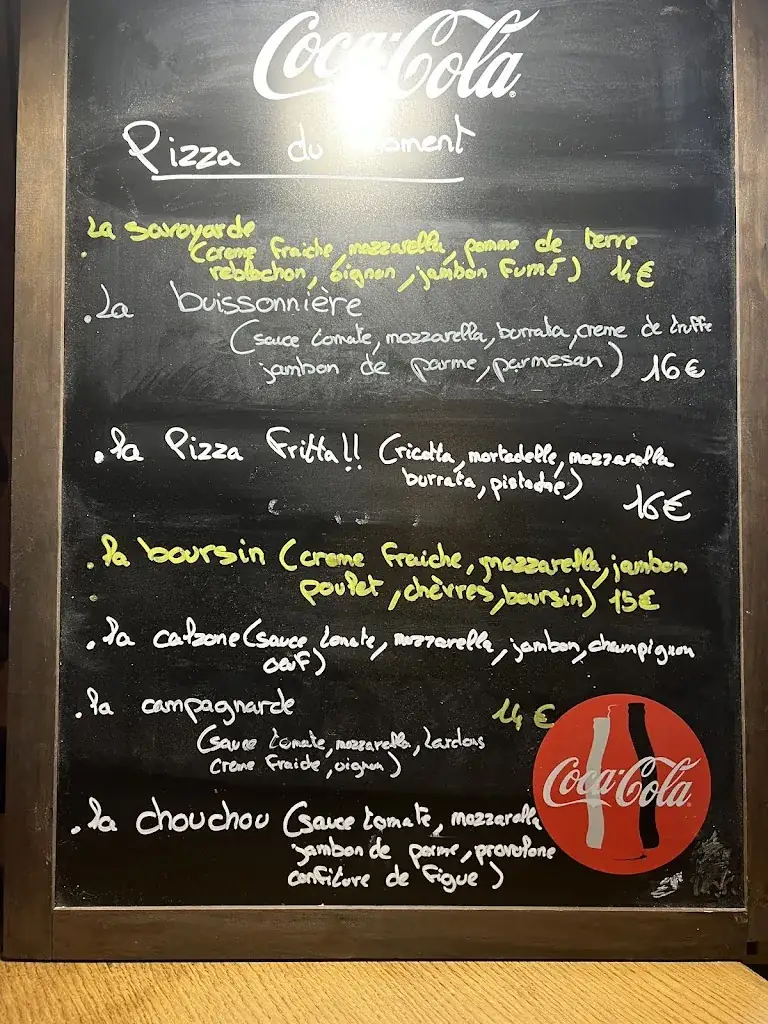 Coca-Cola
Pizza du moment
La savoyarde
(creme fraiche, mozzarella, pomme de terre
reblochon, oignon, jambon fumé) 14€
.La buissonnière
(sauce tomate, mozzarella, burrata, creme de truffe
jambon de parme, parmesan) 16€
.la Pizza Fritta!! (ricotta, mortadelle, mozzarella
burrata, pistache)
16€
.la boursin (creme fraiche, mozzarella, jambon
poulet, chèvres, boursin) 15€
.la calzone (sauce tomate, mozzarella, jambon, champignon
oeuf)
.la campagnarde 14€
(sauce tomate, mozzarella, lardons
creme fraiche, oignon)
Coca-Cola
.la chouchou (sauce tomate, mozzarella
jambon de parme, provolone
confiture de figue)